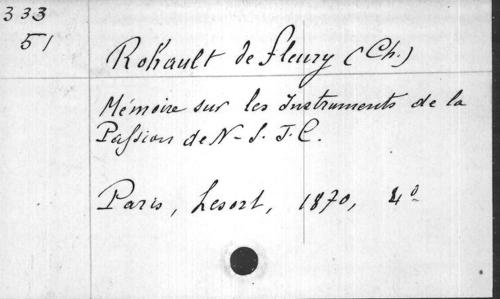 333
51
Rohault de Fleury (Ch.)
Mémoire sur les Instruments de la
Passion de N-S. J. C.
Paris, Lesort, 1870, 4º